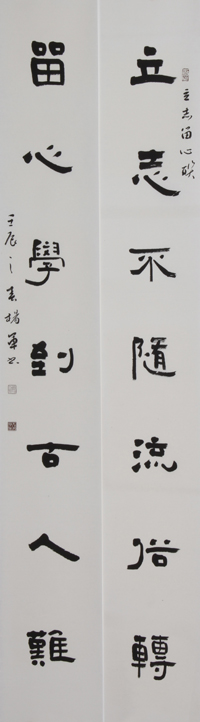 立志不隨流俗轉
立志留心联
留心學到古人難
壬辰之春